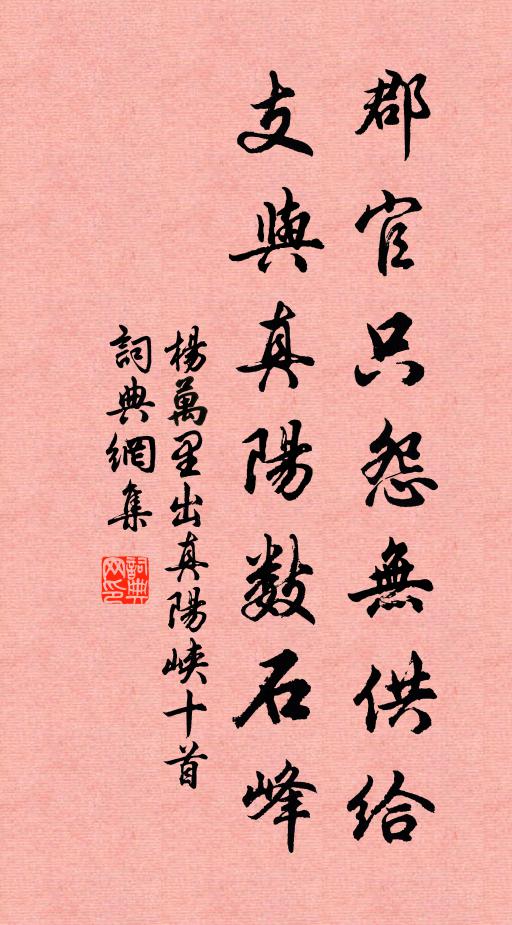 郡官只怨無供給
支與真陽數石峰
楊萬里出真陽峽十首
詞典網集
詞典網印